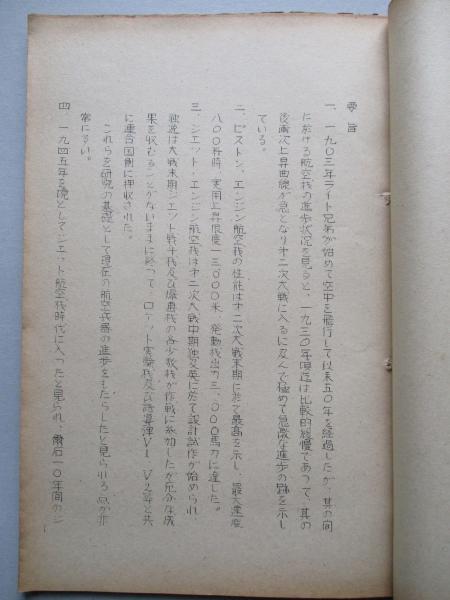 要旨
一、一九〇三年ライト兄弟が始めて空中を飛行して以来五〇年を経過したが、其の間
に於ける航空機の進歩状況を見ると、一九三〇年頃迄は比較的緩慢であつて、其の
後漸次上昇曲線が急となり才二次大戦に入るに及んで極めて急激な進歩の跡を示し
ている。
二、ピストン、エンジン航空機の性能は才二次大戦末期に於て最高を示し、最大速度
八〇〇粁時、実用上昇限度一三、〇〇〇米、発動機出力三、〇〇〇馬力に達した。
三、ジエット・エンジン航空機は才二次大戦中期独及英に於て設計試作が始められ、
独逸は大戦末期ジエット戦斗機及び爆撃機の各少数機が作戦に参加したが充分な成
果を収むることがないままに終つて、ロケット実験機及び誘導弾V1、V2等と共
に連合国側に押収された。
これらを研究の基礎として現在の航空兵器の進歩をもたらしたと見られる点が非
常に多い。
四、一九四五年を境としてジエット航空機時代に入つたと見られ、爾后一〇年間のジ